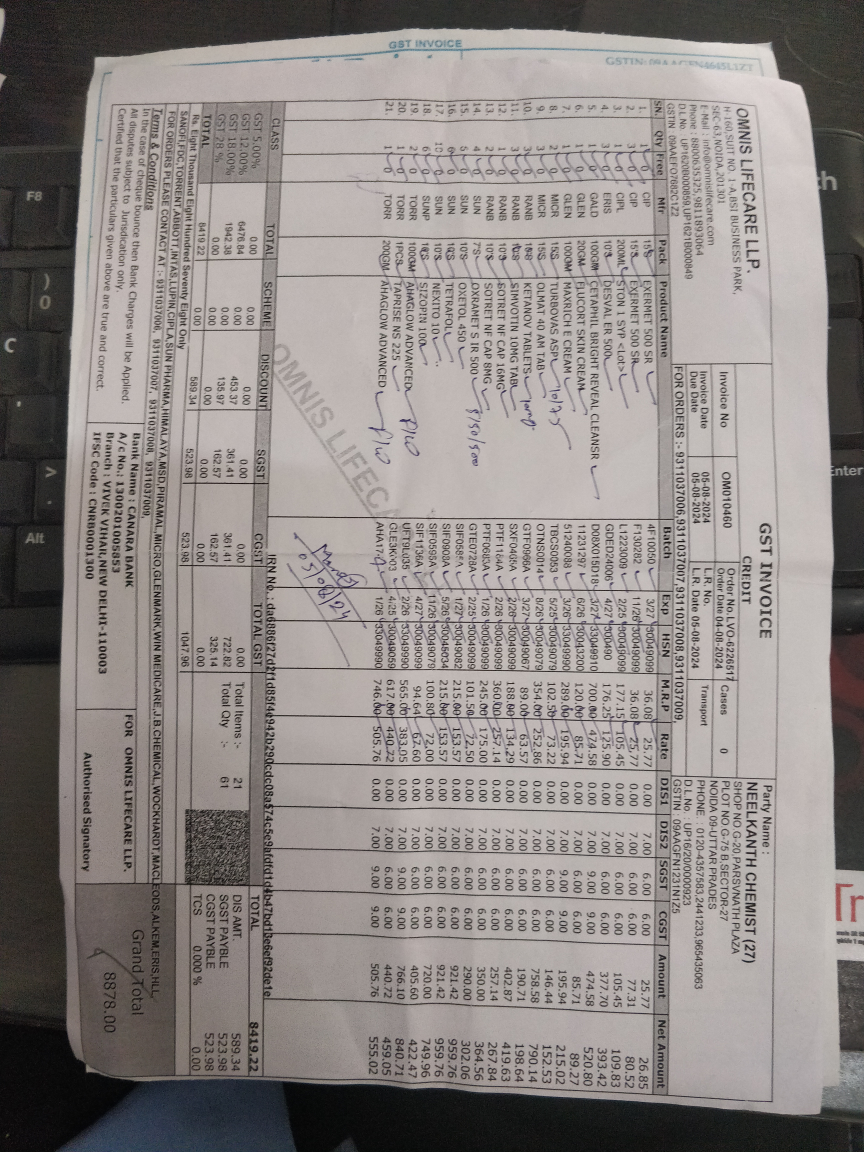 GST INVOICE
OMNIS LIFECARE LLP.
H-160,SUIT NO. 1-A,BSI BUSINESS PARK,
SEC-63,NOIDA,201301
E-Mail : info@omnislifecare.com
Phone : 8800635325,9811893064
D.L.No. UP1620B000899,UP1621B000849
GST INVOICE
CREDIT
Invoice No OM010460
Invoice Date 05-08-2024
Due Date 05-08-2024
Order No.LVO-6226517
Order Date 04-08-2024
L.R. No.
L.R. Date 05-08-2024
Cases 0
Transport
FOR ORDERS :- 9311037006,9311037007,9311037008,9311037009,
Party Name :
NEELKANTH CHEMIST (27)
SHOP NO G-20,PARSVNATH PLAZA
PLOT NO G-75 B,SECTOR-27
NOIDA 09-UTTAR PRADES
PHONE : 0120-4357583,2441233,965435063
D.L.No. : UP16/20/0000923
GSTIN : 09AAGFN1231N1Z5
SN. Qty Free Mfr Pack Product Name Batch Exp HSN M.R.P Rate DIS1 DIS2 SGST CGST Amount Net Amount
1. 1 0 CIP 15'S EXERMET 500 SR 4F10050 3/27 30049099 36.08 25.77 0.00 7.00 6.00 6.00 25.77 26.85
2. 3 0 CIP 15'S EXERMET 500 SR F130282 11/26 30049099 36.08 25.77 0.00 7.00 6.00 6.00 77.31 80.52
3. 1 0 CIPL 200ML STON 1 SYP <Lot> L1223009 2/25 30049099 177.15 105.45 0.00 7.00 6.00 6.00 105.45 109.83
4. 3 0 ERIS 10'S DESVAL ER 500 GDED24006 4/27 176.25 125.90 0.00 7.00 6.00 6.00 377.70 393.42
5. 1 0 GALD 100GM CETAPHIL BRIGHT REVEAL CLEANSR D08X015D18 3/27 33049910 700.00 474.58 0.00 7.00 9.00 9.00 474.58 520.80
6. 1 0 GLEN 20GM ELUCORT SKIN CREAM 11231297 6/26 30043200 120.00 85.71 0.00 7.00 6.00 6.00 85.71 89.27
7. 1 0 GLEN 100GM MAXRICH E CREAM 51240088 3/26 33049990 289.00 195.94 0.00 7.00 9.00 9.00 195.94 215.02
8. 2 0 MICR 15'S TURBOVAS ASP 10/75 TBCS0053 5/25 30049079 102.50 73.22 0.00 7.00 6.00 6.00 146.44 152.53
9. 3 0 MICR 15'S OLMAT 40 AM TAB OTNS0014 8/26 30049079 354.00 252.86 0.00 7.00 6.00 6.00 758.58 790.14
10. 3 0 RANB KETANOV TABLETS 10mg GTF0966A 3/27 30049067 89.00 63.57 0.00 7.00 6.00 6.00 190.71 198.64
11. 3 0 RANB SIMVOTIN 10MG TAB SXF0405A 2/26 30049099 188.00 134.29 0.00 7.00 6.00 6.00 402.87 419.63
12. 1 0 RANB 10'S SOTRET NF CAP 16MG PTF1164A 2/26 30049099 360.00 257.14 0.00 7.00 6.00 6.00 257.14 267.84
13. 2 0 RANB 10'S SOTRET NF CAP 8MG PTF0683A 1/26 30049099 245.00 175.00 0.00 7.00 6.00 6.00 350.00 364.56
14. 4 0 SUN 7'S OXRAMET S IR 500 5/50/500 GTE0728A 2/25 30049099 101.50 72.50 0.00 7.00 6.00 6.00 290.00 302.06
15. SUN 10'S OXETOL 450 1/27 30049082 215.00 153.57 0.00 7.00 6.00 6.00 921.42 959.76
16. 6 0 SUN 10'S TETRAFOL SIF0908A 5/26 215.00 153.57 0.00 7.00 6.00 6.00 921.42 959.76
17. 10 0 SUN 10'S NEXITO 10 SIF0995A 11/26 30049079 100.80 72.00 0.00 7.00 6.00 6.00 720.00 749.96
18. 6 0 SUNP 10'S SIZOPIN 100 SIF1136A 4/27 30049099 94.64 67.60 0.00 7.00 6.00 6.00 405.60 422.47
19. 2 0 TORR 100GM AHAGLOW ADVANCED 2/26 33049990 565.00 383.05 0.00 7.00 9.00 9.00 766.10 840.71
20. 1 0 TORR 1PCS TAPRISE NS 225 4/25 30049059 617.00 440.72 0.00 7.00 6.00 6.00 440.72 459.05
21. 1 0 TORR 200GM AHAGLOW ADVANCED 1/26 33049990 746.00 505.76 0.00 7.00 9.00 9.00 505.76 555.02
OMNIS LIFECA
05/08/24
CLASS TOTAL SCHEME DISCOUNT SGST CGST TOTAL GST
GST 5.00% 0.00 0.00 0.00 0.00 0.00 0.00
GST 12.00% 6476.84 0.00 453.37 361.41 361.41 722.82
GST 18.00% 1942.38 0.00 135.97 162.57 162.57 325.14
GST 28 % 0.00 0.00 0.00 0.00 0.00 0.00
TOTAL 8419.22 0.00 589.34 523.98 523.98 1047.96
Total Items :- 21
Total Qty :- 61
TOTAL 8419.22
DIS AMT. 589.34
SGST PAYBLE 523.98
CGST PAYBLE 523.98
TCS 0.000 % 0.00
Grand Total 8878.00
Rs. Eight Thousand Eight Hundred Seventy Eight Only
SANOFI,FDC,TORRENT,ABBOTT,INTAS,LUPIN,CIPLA,SUN PHARMA,HIMALAYA,MSD,PIRAMAL,MICRO,GLENMARK,WIN MEDICARE,J.B.CHEMICAL,WOCKHARDT,MACLEODS,ALKEM,ERIS,HLL,
FOR ORDERS PLEASE CONTACT AT :- 9311037006, 9311037007, 9311037008, 9311037009,
Terms & Conditions
In the case of cheque bounce then Bank Charges will be Applied.
All disputes subject to Jurisdication only.
Certified that the particulars given above are true and correct.
Bank Name : CANARA BANK
A/c No.: 1300201005853
Branch : VIVEK VIHAR,NEW DELHI-110003
IFSC Code : CNRB0001300
FOR OMNIS LIFECARE LLP.
Authorised Signatory
F8
Alt
Enter
C